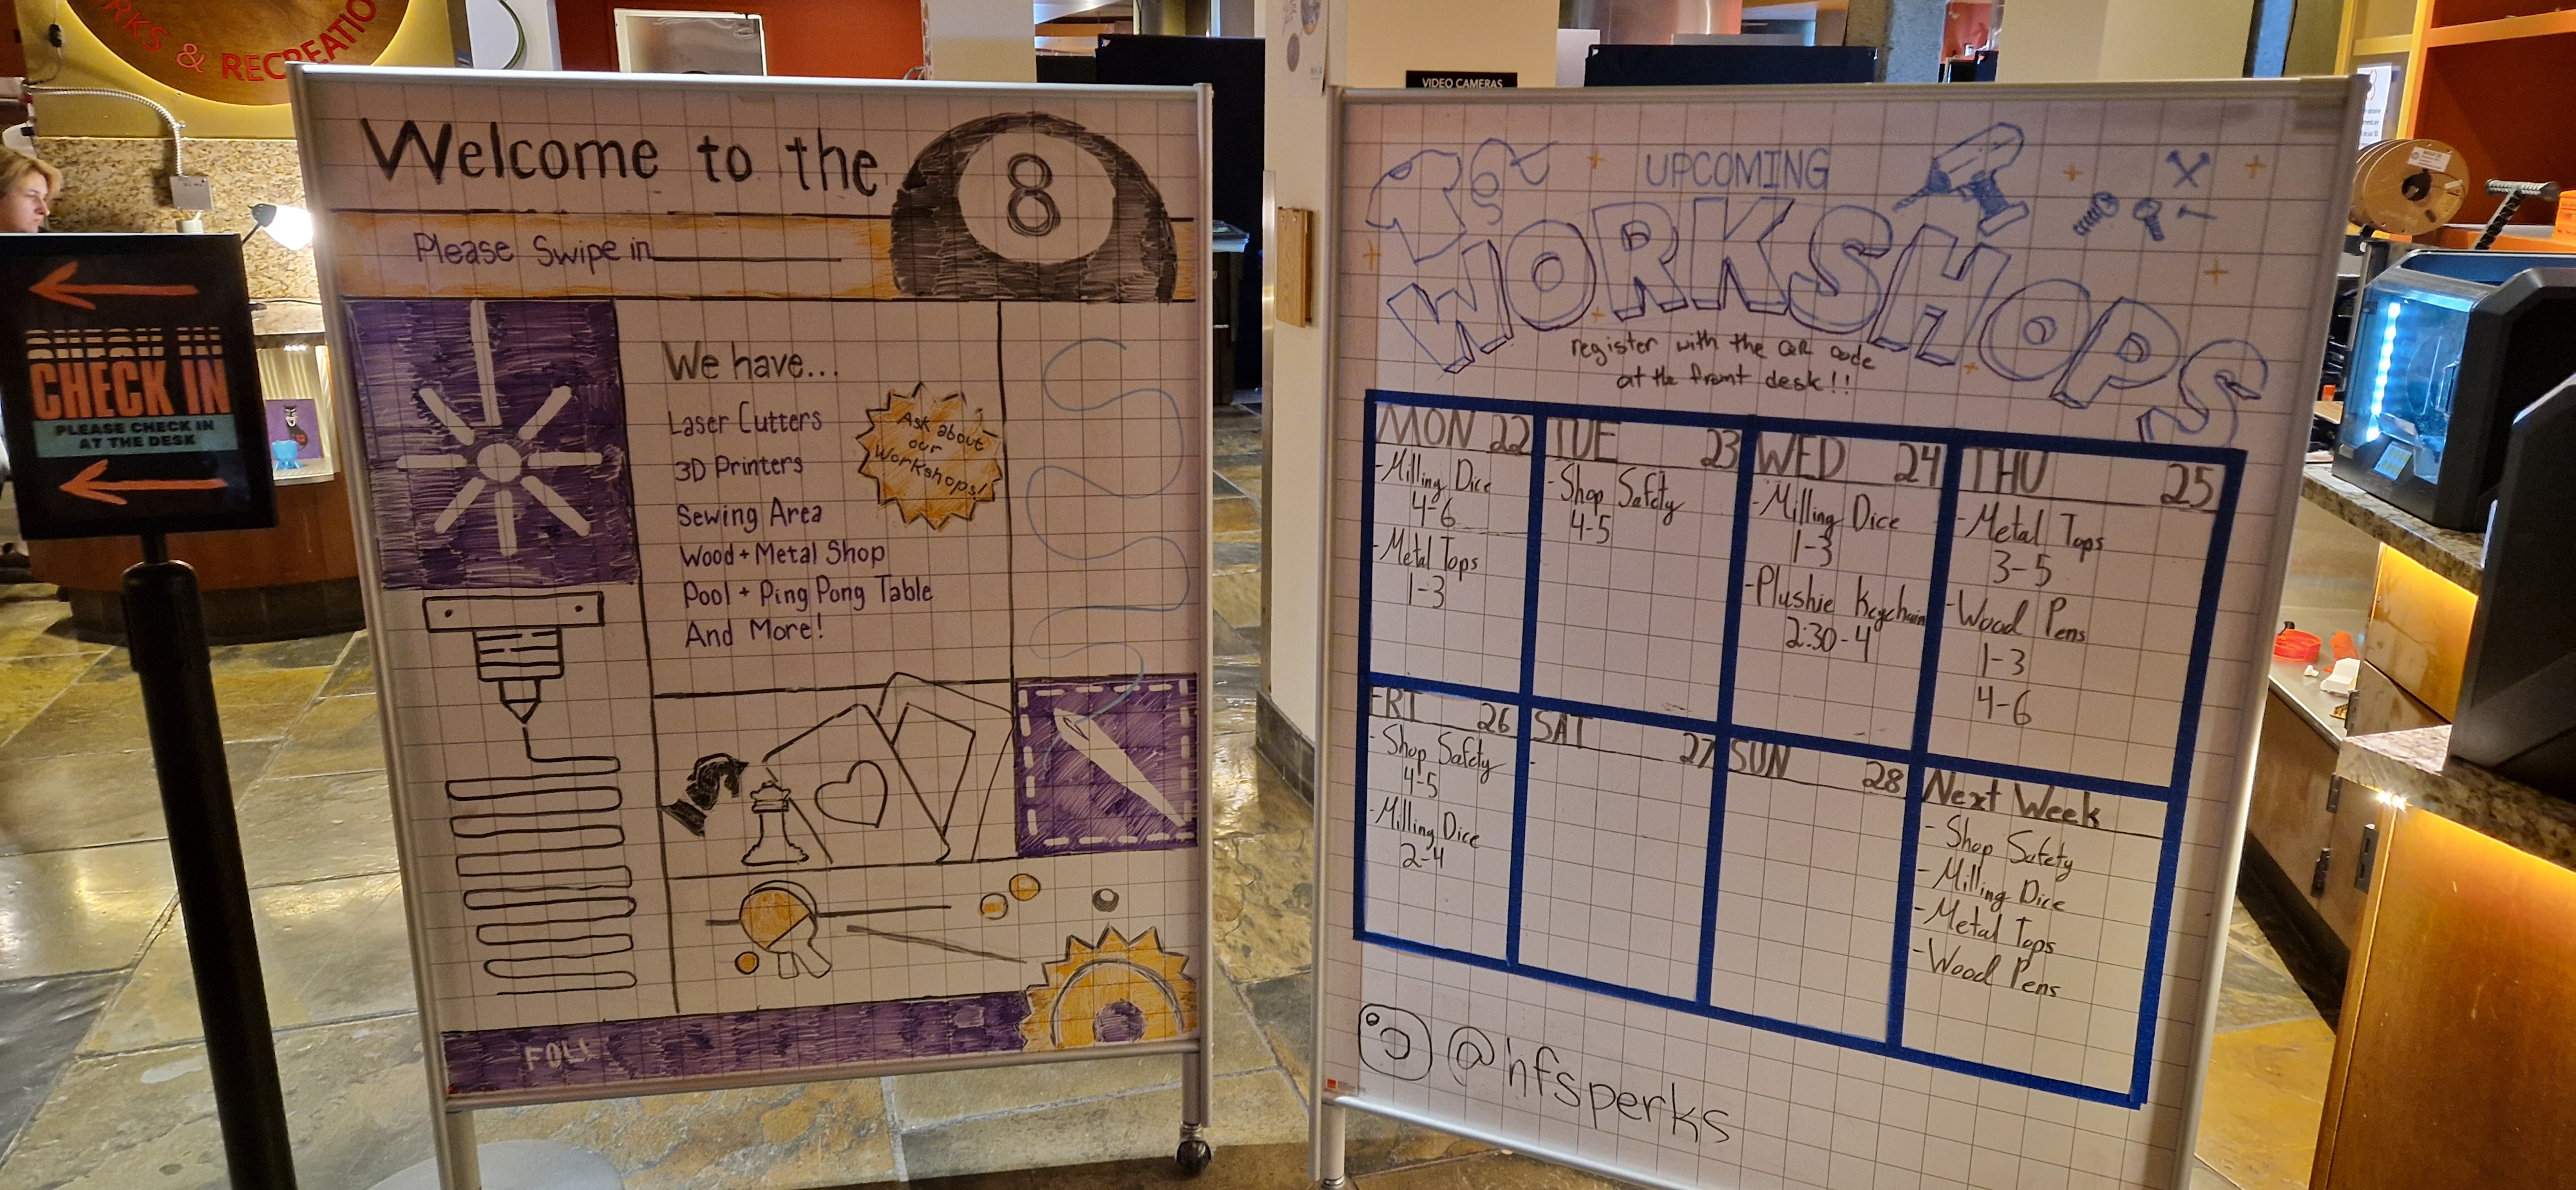 & RECREATIO
CHECK IN
PLEASE CHECK IN
AT THE DESK
Welcome to the
8
Please Swipe in
We have...
Laser Cutters
3D Printers
Sewing Area
Wood + Metal Shop
Pool + Ping Pong Table
And More!
Ask about
our
Workshops!
FOLL
VIDEO CAMERAS
UPCOMING
WORKSHOPS
register with the QR code
at the front desk!!
MON 22
- Milling Dice
4-6
- Metal Tops
1-3
TUE 23
- Shop Safety
4-5
WED 24
- Milling Dice
1-3
- Plushie Keychain
2:30-4
THU 25
- Metal Tops
3-5
- Wood Pens
1-3
4-6
FRI 26
- Shop Safety
4-5
- Milling Dice
2-4
SAT 27
-
SUN 28
Next Week
- Shop Safety
- Milling Dice
- Metal Tops
- Wood Pens
@hfsperks